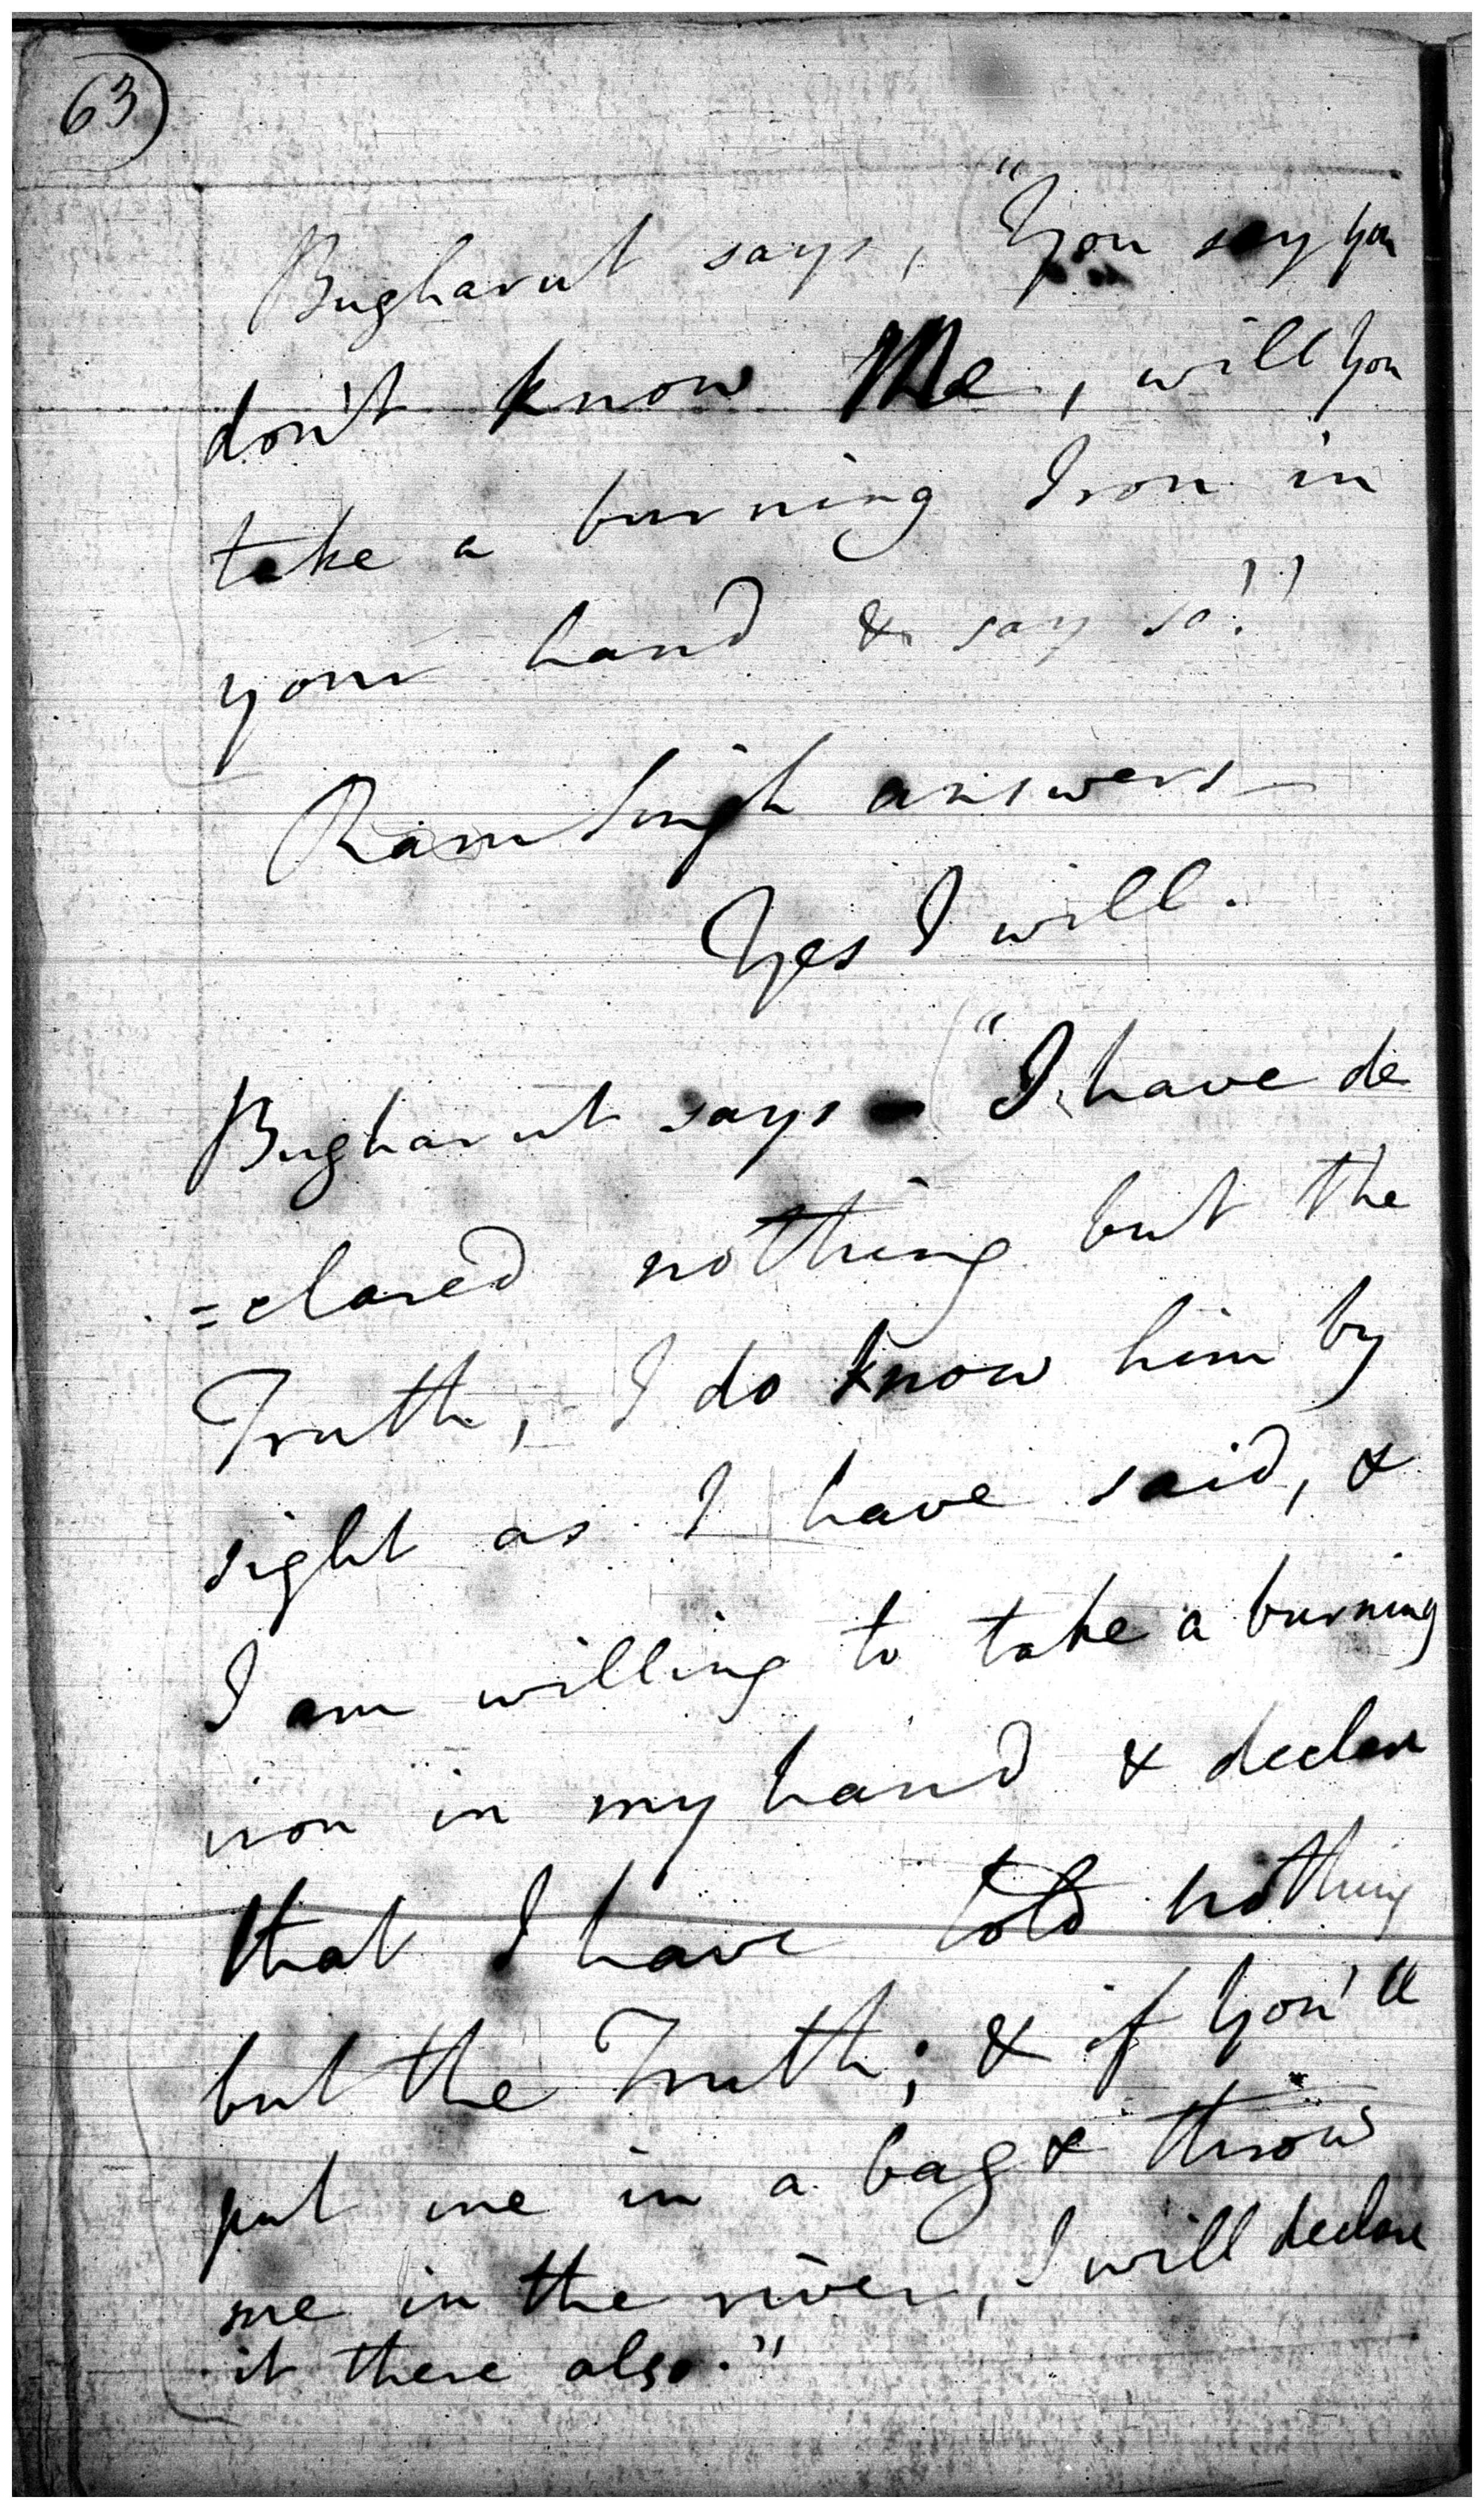 63)
Bugharut says, "You say you
don't know Me, will you
take a burning Iron in
your hand & say so!"
Ram Singh answers
Yes I will.
Bugharut says - "I have de
=clared nothing but the
Truth, I do know him by
sight as I have said, &
I am willing to take a burning
iron in my hand & declare
that I have told nothing
but the Truth; & if you'll
put me in a bag & throw
me in the river, I will declare
it there also."